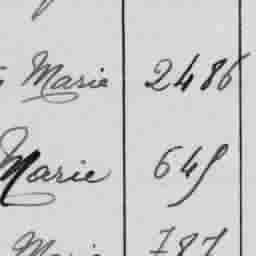 Marie 2486
Marie 649
Marie 787